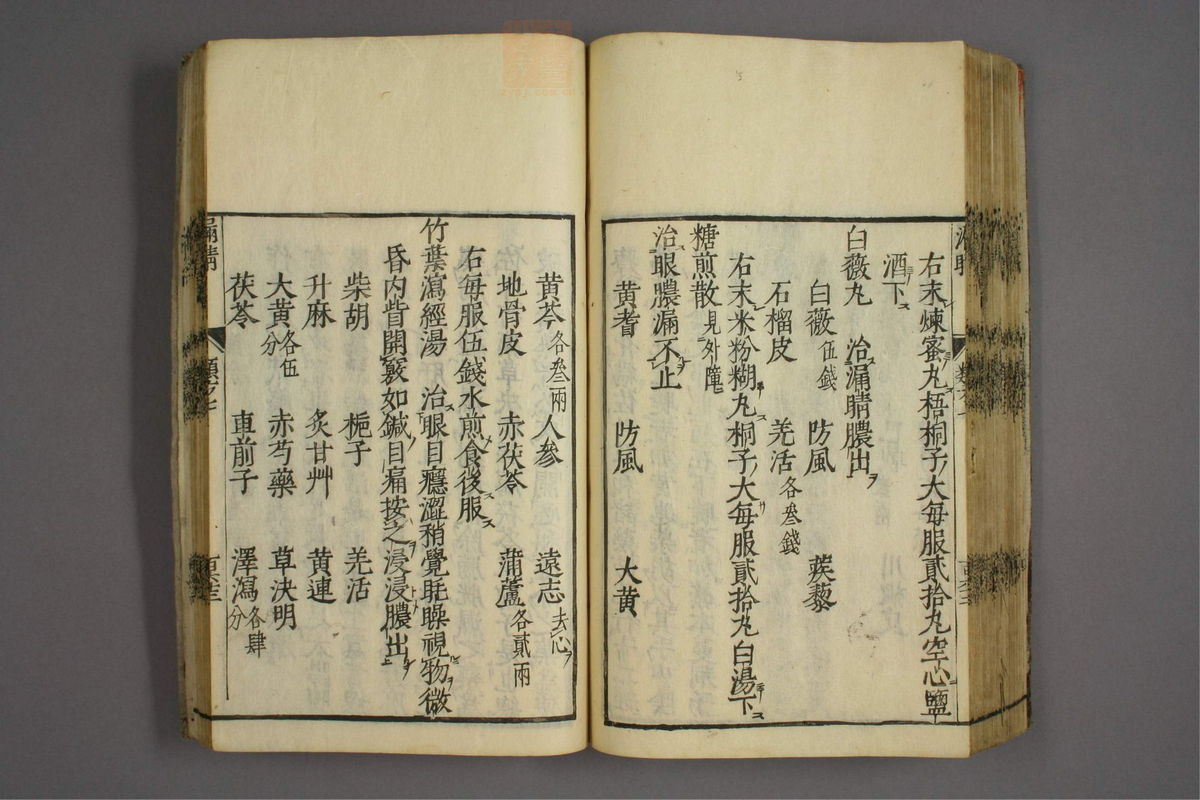 右末煉蜜丸梧桐子大每服貳拾丸空心鹽
酒下
白薇丸 治漏睛膿出
白薇伍錢 防風 蒺藜
石榴皮 羌活各叄錢
右末米粉糊丸桐子大每服貳拾丸白湯下
糖煎散見外障
治眼膿漏不止
黄耆 防風 大黄
黄芩各叄兩 人參 遠志去心
地骨皮 赤茯苓 蒲蘆各貳兩
右每服伍錢水煎食後服
竹葉瀉經湯 治眼目癮澀稍覺眊矂視物微
昏內眥開竅如鍼目痛按之浸浸膿出
柴胡 梔子 羌活
升麻 炙甘艸 黄連
大黄各伍分 赤芍藥 草決明
茯苓 車前子 澤瀉各肆分
漏睛